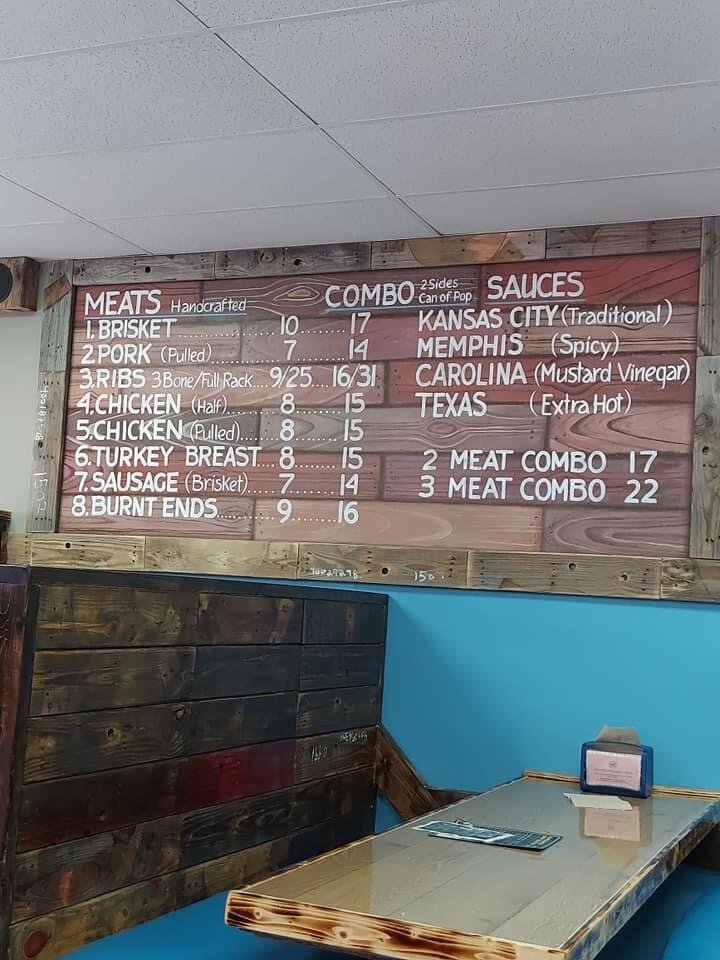 MEATS Handcrafted COMBO 2 Sides Can of Pop
1. BRISKET............... 10 ....... 17
2. PORK (Pulled)............. 7 ........ 14
3. RIBS 3 Bone/Full Rack.... 9/25.... 16/31
4. CHICKEN (Half).......... 8 ........ 15
5. CHICKEN (Pulled)....... 8 ........ 15
6. TURKEY BREAST.... 8 ........ 15
7. SAUSAGE (Brisket)...... 7 ........ 14
8. BURNT ENDS........... 9 ........ 16
SAUCES
KANSAS CITY (Traditional)
MEMPHIS (Spicy)
CAROLINA (Mustard Vinegar)
TEXAS (Extra Hot)
2 MEAT COMBO 17
3 MEAT COMBO 22